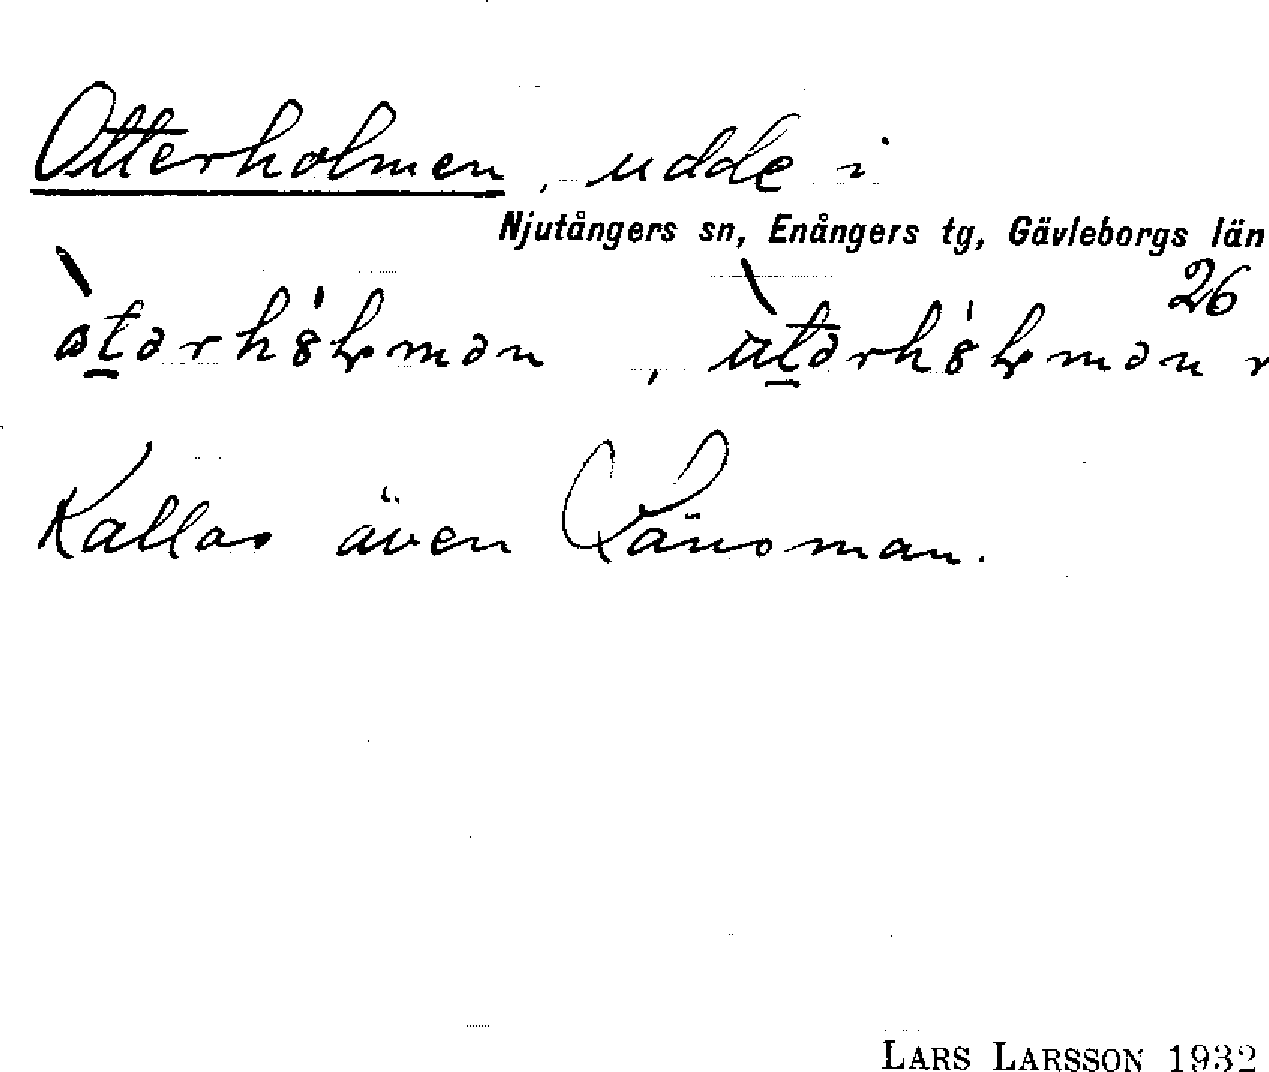 Otterholmen, udde i
Njutångers sn, Enångers tg, Gävleborgs län
26
Kallas även Länsman.
LARS LARSSON 1932